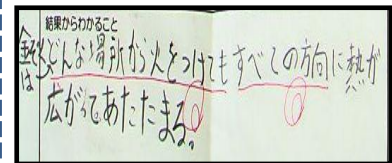 結果からわかること
金ぞくはどんな場所から火をつけてもすべての方向に熱が
広がってあたたまる。